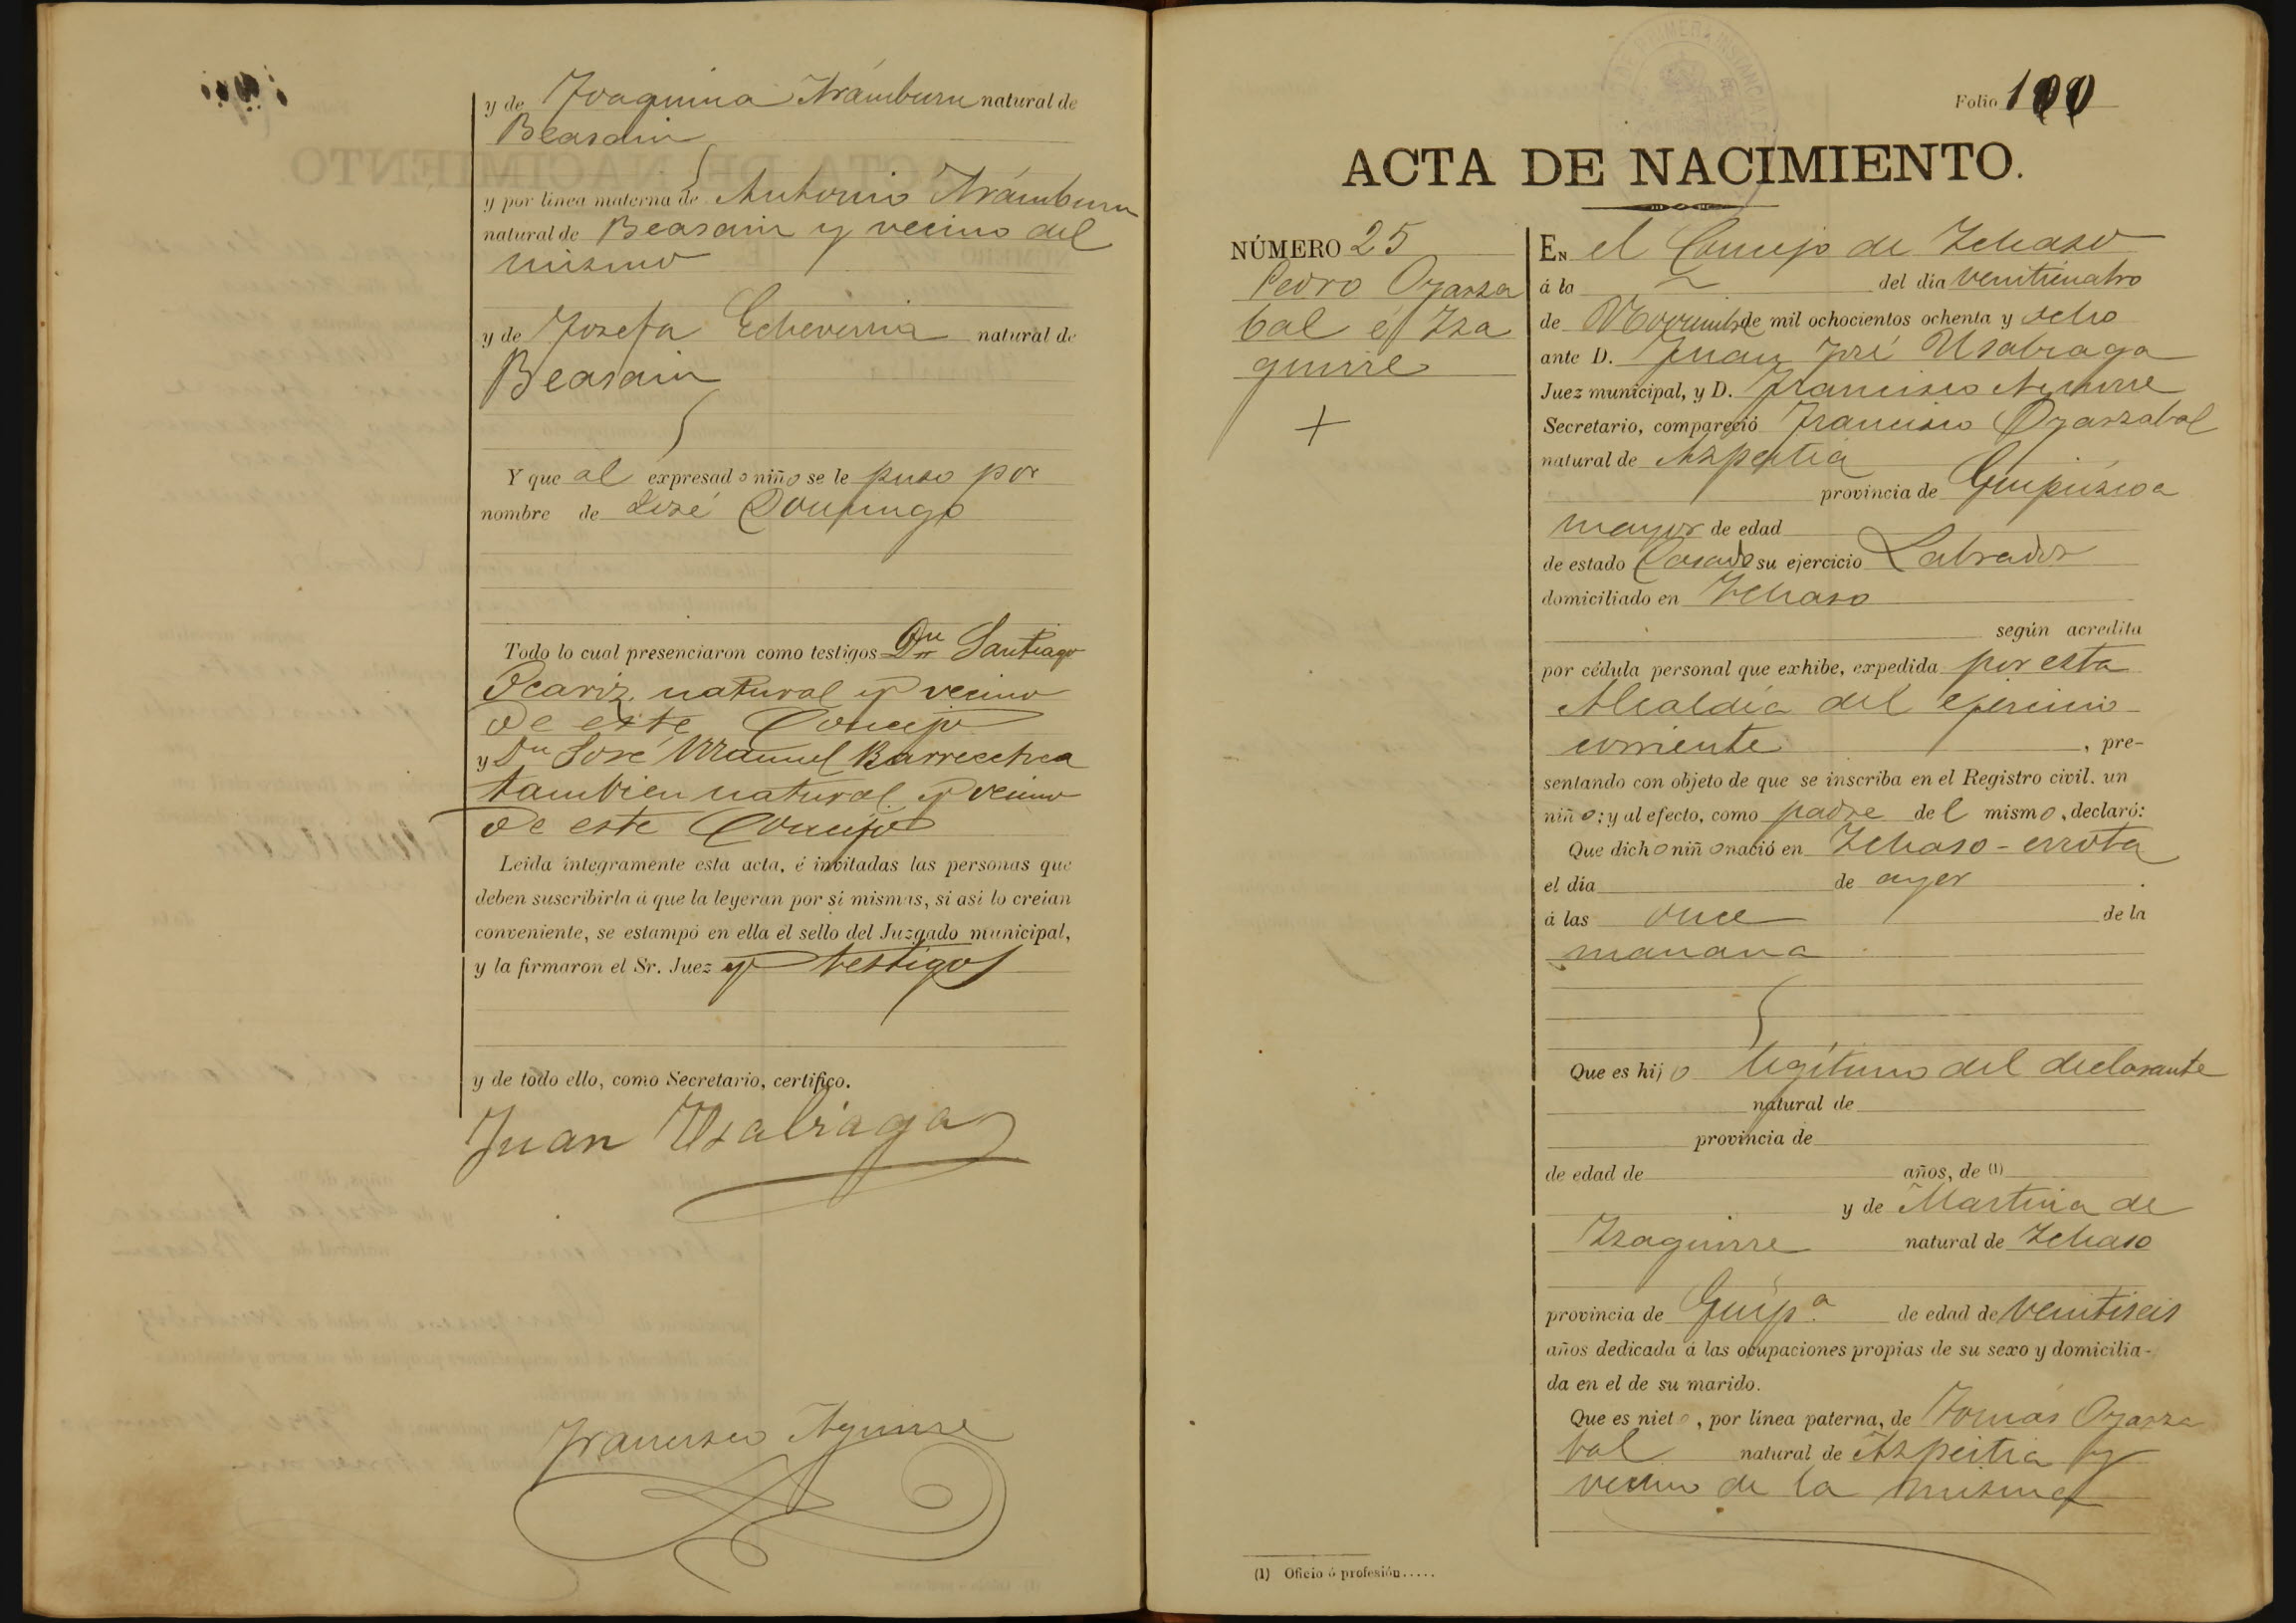 y de Joaquina Arámburu natural de
Beasain
y por línea materna de Antonio Arámburu
natural de Beasain y vecino del
mismo
y de Josefa Echeverria natural de
Beasain
Y que al expresado niño se le puso por
nombre de José Domingo
Todo lo cual presenciaron como testigos Dn Santiago
Ocariz natural y vecino
de este Concejo
y Dn José Manuel Barrecehea
tambien natural y vecino
de este Concejo
Leída íntegramente esta acta, é invitadas las personas que
deben suscribirla á que la leyeran por sí mismas, si así lo creían
conveniente, se estampó en ella el sello del Juzgado municipal,
y la firmaron el Sr. Juez y testigos
y de todo ello, como Secretario, certifico.
Juan Usabiaga
Francisco Aguirre
Folio 100
ACTA DE NACIMIENTO.
NÚMERO 25
Pedro Oyarza
bal é Iza
guirre
EN el Concejo de Ichaso
á la del día veinticuatro
de Noviembre de mil ochocientos ochenta y ocho
ante D. Juan José Usabiaga
Juez municipal, y D. Francisco Aguirre
Secretario, compareció Francisco Oyarzabal
natural de Azpeitia
provincia de Guipúzcoa
mayor de edad
de estado Casado su ejercicio Labrador
domiciliado en Ichaso
según acredita
por cédula personal que exhibe, expedida por esta
Alcaldía del ejercicio
corriente, pre-
sentando con objeto de que se inscriba en el Registro civil. un
niño; y al efecto, como padre del mismo, declaró:
Que dicho niño nació en Ichaso-errota
el día de ayer
á las once de la
mañana
Que es hijo legítimo del declarante
natural de
provincia de
de edad de años, de (1)
y de Martina de
Izaguirre natural de Ichaso
provincia de Guipa. de edad de veintiseis
años dedicada á las ocupaciones propias de su sexo y domicilia-
da en el de su marido.
Que es nieto, por línea paterna, de Tomás Oyarza
bal natural de Azpeitia y
vecino de la misma
(1) Oficio ó profesión.....